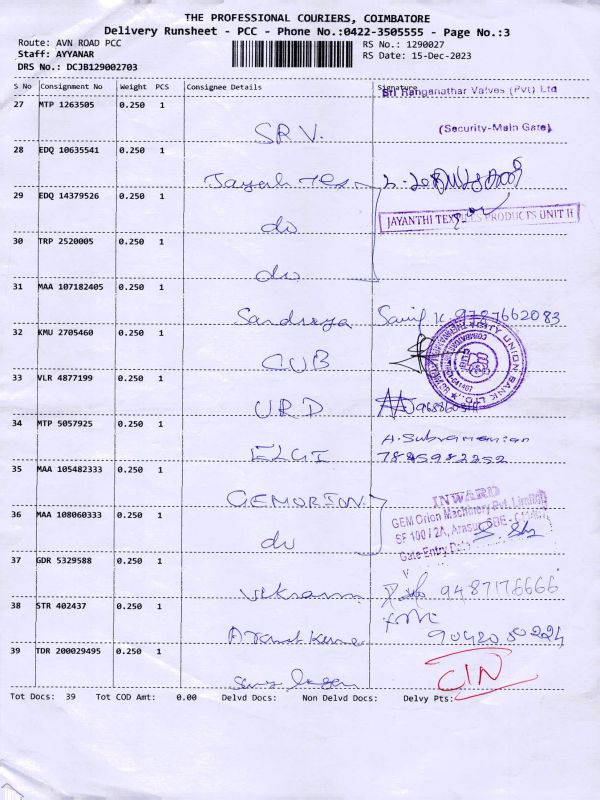 THE PROFESSIONAL COURIERS, COIMBATORE
Delivery Runsheet - PCC - Phone No.:0422-3505555 - Page No.:3
Route: AVN ROAD PCC
RS No.: 1290027
Staff: AYYANAR
RS Date: 15-Dec-2023
DRS No.: DCJB129002703
S No Consignment No Weight PCS Consignee Details Signature
Sri Ranganathar Valves (Pvt) Ltd
27 MTP 1263505 0.250 1
SRV.
(Security-Main Gate)
28 EDQ 10635541 0.250 1
29 EDQ 14379526 0.250 1
do
JAYANTHI TEXTILES PRODUCTS UNIT II
30 TRP 2520005 0.250 1
do
31 MAA 107182405 0.250 1
9787662083
32 KMU 2705460 0.250 1
CUB
CITY UNION BANK LTD.
33 VLR 4877199 0.250 1
URD
34 MTP 5057925 0.250 1
ELGI
A. Subramanian
7845982252
35 MAA 105482333 0.250 1
GEMORION
INWARD
GEM Orion Machinery Pvt. Limited
SF 100 / 2A, Arasur
36 MAA 108060333 0.250 1
do
Gate Entry
37 GDR 5329588 0.250 1
Vikram
9487176666
38 STR 402437 0.250 1
9042050224
39 TDR 200029495 0.250 1
CIN
Tot Docs: 39 Tot COD Amt: 0.00 Delvd Docs: Non Delvd Docs: Delvy Pts: